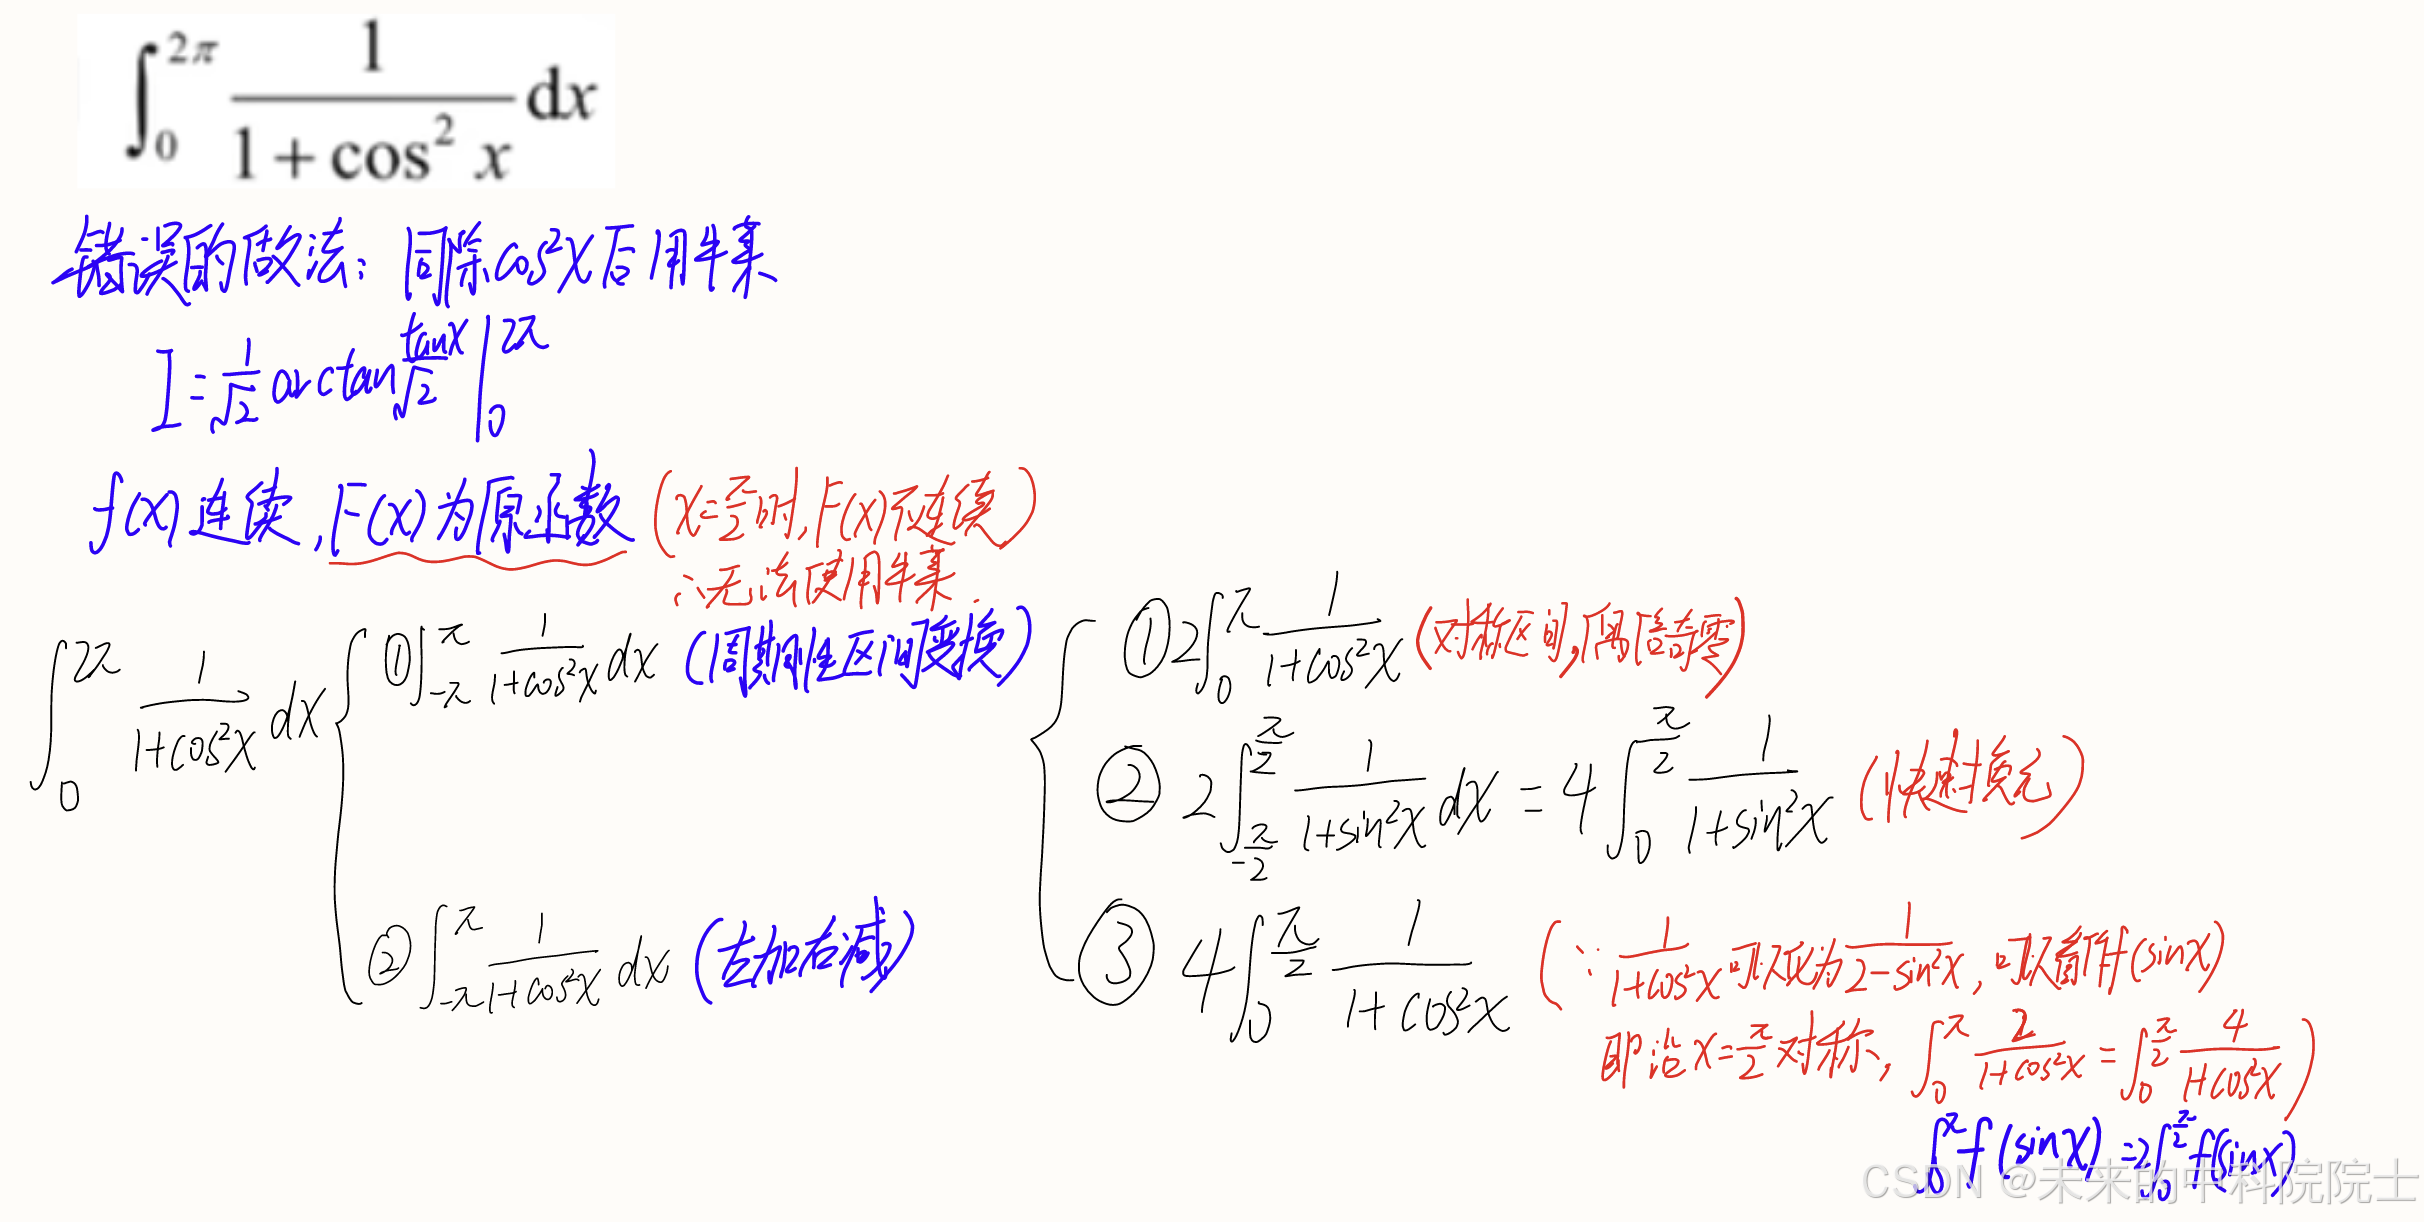 ∫₀^{2π} 1/(1+cos² x) dx
错误的做法：同除cos²x后用牛莱
I=1/√2 arctan tanx/√2 |₀^{2π}
f(x)连续，F(x)为原函数（x=π/2时，F(x)不连续）
∴无法使用牛莱.
∫₀^{2π} 1/(1+cos²x) dx
①∫_{-π}^{π} 1/(1+cos²x) dx（周期性区间变换）
②∫_{-π}^{π} 1/(1+cos²x) dx（左加右减）
①2∫₀^{π} 1/(1+cos²x)（对称区间，偶倍奇零）
②2∫_{-π/2}^{π/2} 1/(1+sin²x) dx=4∫₀^{π/2} 1/(1+sin²x)（快速换元）
③4∫₀^{π/2} 1/(1+cos²x)（∵1/(1+cos²x)可以化为1/(2-sin²x)，可以看作f(sinx)
即沿x=π/2对称，∫₀^{π} 2/(1+cos²x)=∫₀^{π/2} 4/(1+cos²x)）
∫₀^{π} f(sinx)=2∫₀^{π/2} f(sinx)
CSDN @未来的中科院院士